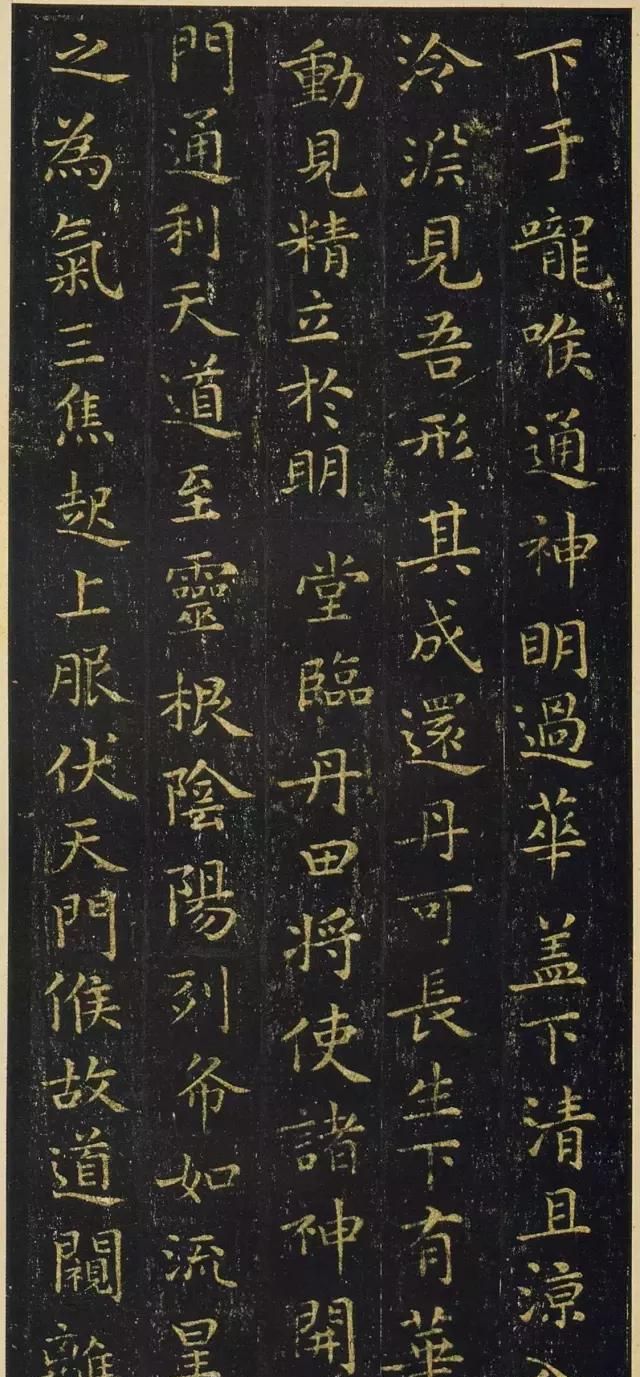 下于嚨喉通神明過華盖下清且涼
泠渁見吾形其成還丹可長生下有華
動見精立於明堂臨丹田將使諸神開
門通利天道至靈根陰陽列布如流星
之為氣三焦起上服伏天門候故道闚離